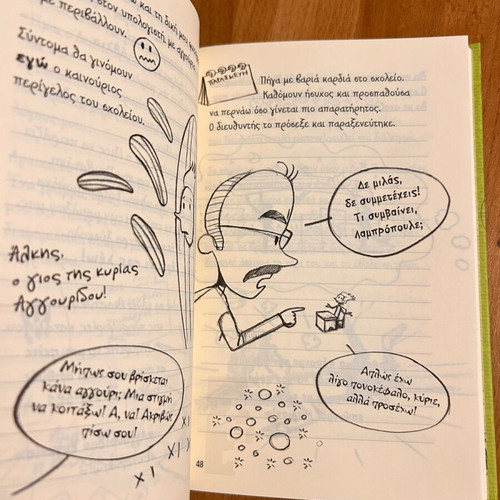 ω και τη δική μου
στον υπολογιστή με αγγούρια
με περιβάλλουν.
Σύντομα θα γινόμουν
εγώ ο καινούριος
περίγελος του σχολείου.
Άλκης,
ο γιος της κυρίας
Αγγουρίδου!
Μήπως σου βρίσκεται
κάνα αγγούρι; Μια στιγμή
να κοιτάξω! Α, να! Ακριβώς
πίσω σου!
ΠΑΡΑΣΚΕΥΗ
Πήγα με βαριά καρδιά στο σχολείο.
Καθόμουν ήσυχος και προσπαθούσα
να περνάω όσο γίνεται πιο απαρατήρητος.
Ο διευθυντής το πρόσεξε και παραξενεύτηκε.
Δε μιλάς,
δε συμμετέχεις!
Τι συμβαίνει,
Λαμπρόπουλε;
Απλώς έχω
λίγο πονοκέφαλο, κύριε,
αλλά προσέχω!
48